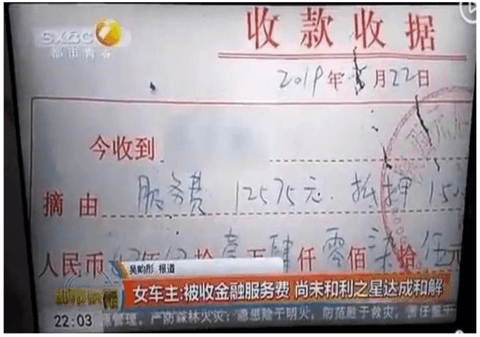 SXBC
都市青春
收款收据
2019年 月22日
今收到
摘由 服务费 12575元. 抵押 150
人民币 拾壹万肆仟零佰柒拾伍元
吴昀彤 报道
女车主:被收金融服务费 尚未和利之星达成和解
22:03
管理,严防森林火灾;隐患险于明火,防范胜于救灾,责任重